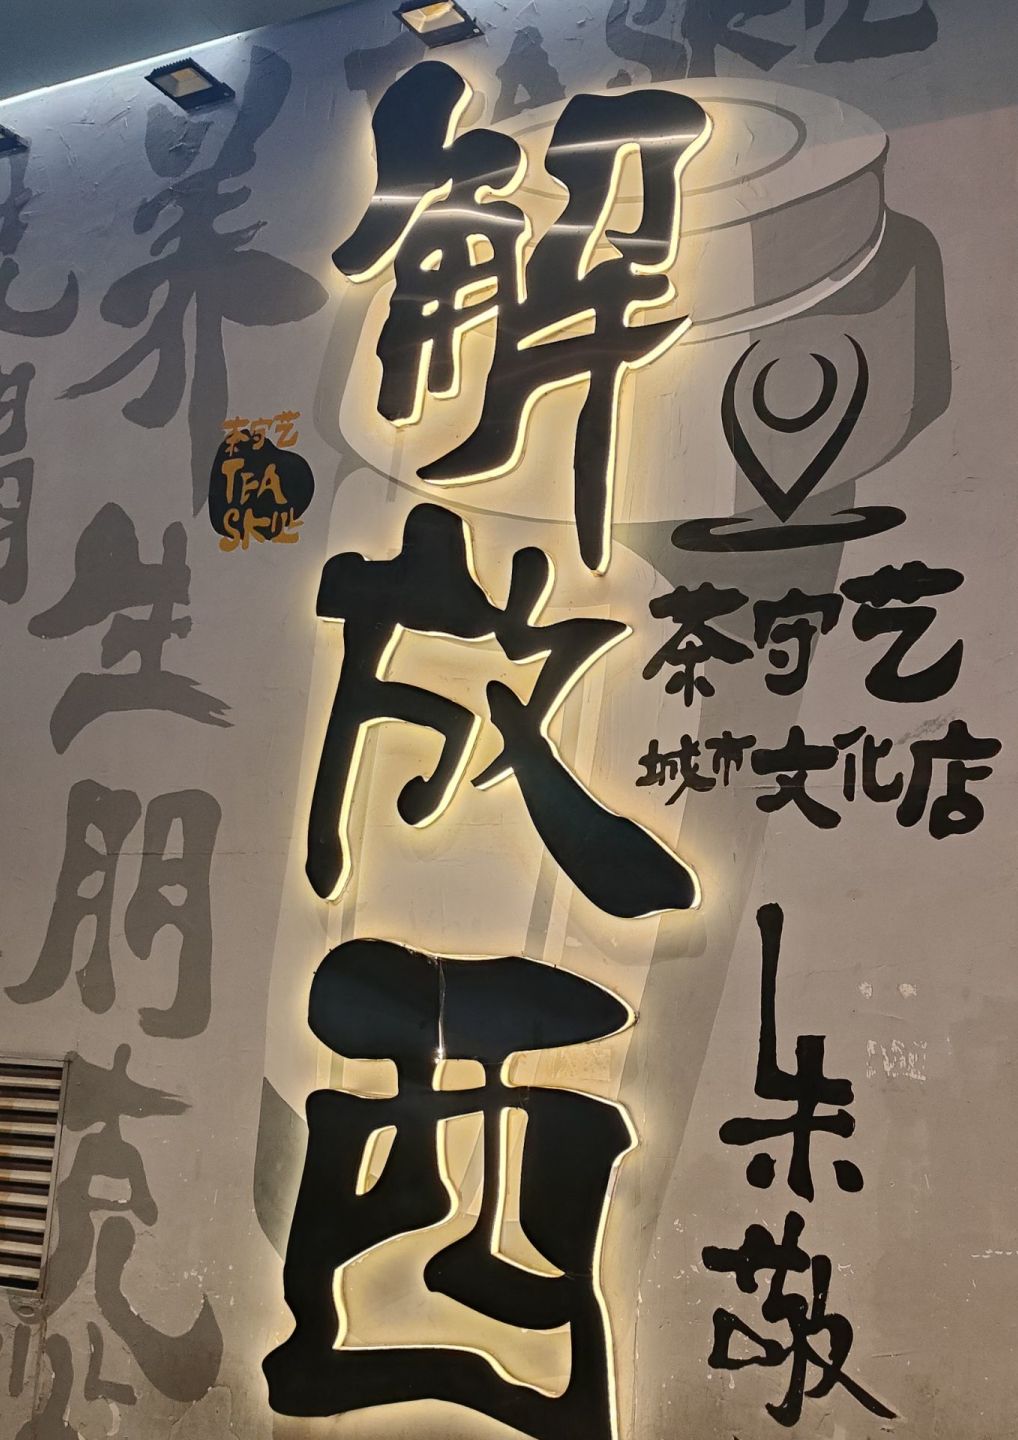 TEA SKILL
解放西
茶守艺
城市文化店
朱敬
茶守艺
TEA
SKILL
养生朋克